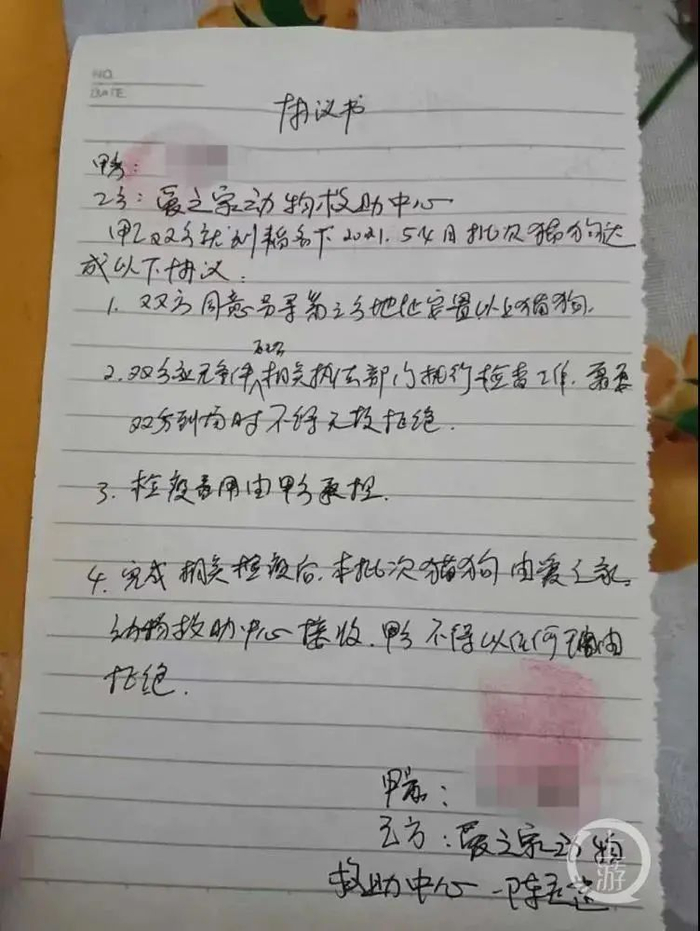 NO.
DATE
协议书
甲方：
乙方：爱之家动物救助中心
甲乙双方就 名下2021.5.4日批次猫狗达
成以下协议：
1. 双方同意另寻第三方地址安置以上猫狗.
2. 双方应 相关执法部门执行检查工作. 需要
双方到场时不得无故拒绝.
3. 检疫费用由甲方承担.
4. 完成相关检疫后. 本批次猫狗由爱之家
动物救助中心接收. 甲方不得以任何理由
拒绝.
甲方：
乙方：爱之家动物
救助中心 陈
游